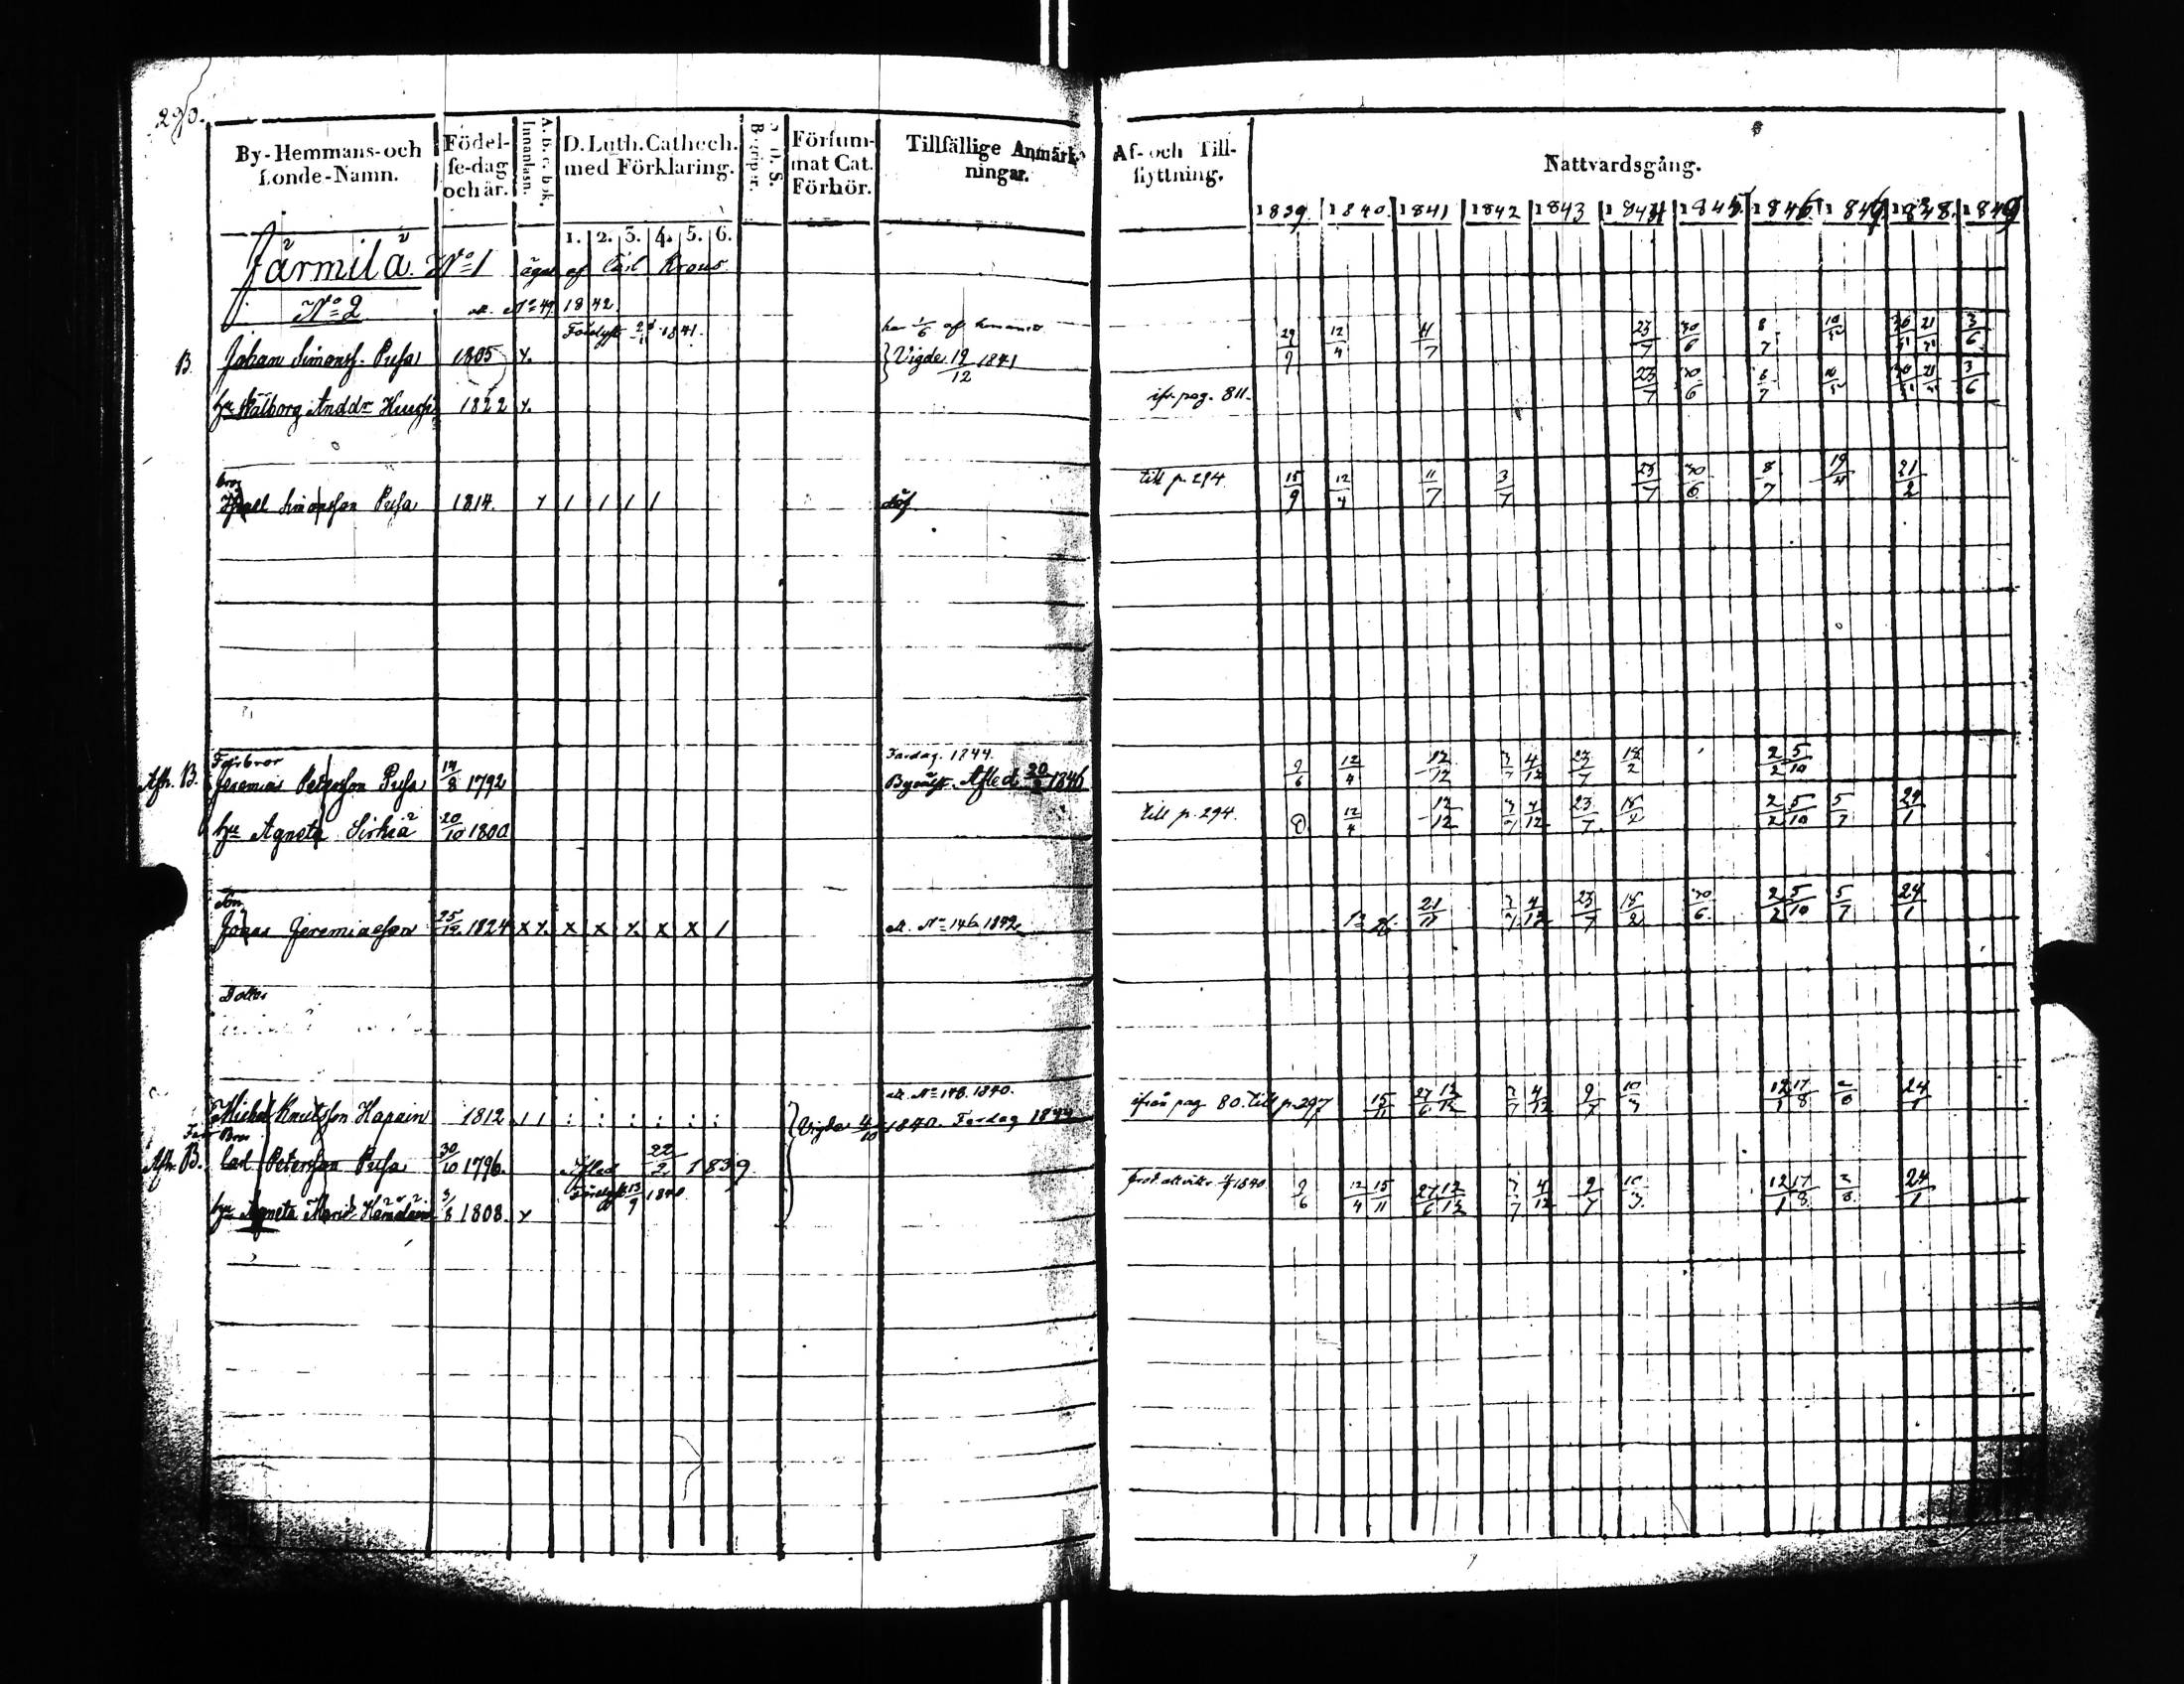 290.
By-Hemmans-och Bonde-Namn.
Födel-se-dag och år.
A. b. c. bok.
Innanläsn.
D. Luth. Cathech. med Förklaring.
1. 2. 3. 4. 5. 6.
Försum-mat Cat. Förhör.
Tillfällige Anmärk-ningar.
Af- och Till-flyttning.
Nattvardsgång.
1839. 1840. 1841 1842 1843 1844 1845 1846 1847 1848. 1849
Järmilä. No 1 äges af Carl Krous.
No 2 att. No 49 1842.
Förelyst 2/11 1841. har 1/6 af hemanet
B. Johan Simonss. Pusa 1805 x. Vigde 12/12 1841 29/9 12/4 11/7 23/7 30/6 8/7 3/6
hu Wälborg Anddr 1822 x. ifr. pag. 811. 23/7 30/6 8/7 3/6
bror
Israel Simonsson Pusa 1814. x / / / / döf till p. 294. 15/9 12/4 11/7 3/7 23/7 30/6 8/7 19/4 21/2
Farbror Fardag. 1844.
Afh. B. Jeremias Petersson Pusa 14/8 1792 Afled 20/2 1846 9/6 12/4 12/12 3/7 4/12 23/7 18/2 2/2 5/10
hu Agneta Sirkiä 20/10 1800 till p. 294. 12/4 12/12 3/7 4/12 23/7 18/2 2/2 5/10 5/7 24/1
Son
Jonas Jeremiasson 25/12 1824 x x x x x x x / att. No 146 1842 21/11 3/7 4/12 23/7 18/2 30/6 2/2 5/10 5/7 24/1
Dotter
att. No 148. 1840.
Michel Knutsson Hapain 1812 / / Vigde 4/10 1840. Fardag 1844 ifrån pag 80. till p. 297 15/11 27/6 12/12 3/7 4/12 9/7 10/3 12/1 17/8 24/1
Far Bror
Afh. B. Carl Petersson Pusa 30/10 1796. Afled 22/2 1839
Förelyst 13/9 1840
hu Agneta Mari 3/8 1808. x 1840 9/6 12/4 15/11 27/6 12/12 3/7 4/12 9/7 10/3. 12/1 17/8 24/1